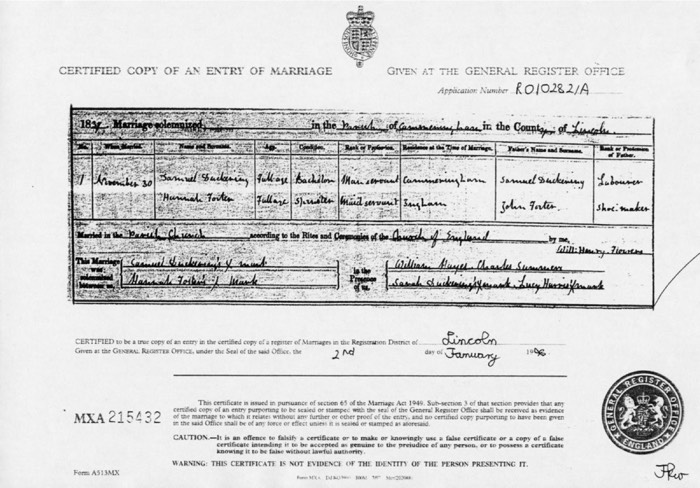 CERTIFIED COPY OF AN ENTRY OF MARRIAGE
GIVEN AT THE GENERAL REGISTER OFFICE
Application Number R010282/A
Marriage solemnized in the Parish of in the County of Lincoln
No. When Married. Name and Surname. Age. Condition. Rank or Profession. Residence at the Time of Marriage. Father's Name and Surname. Rank or Profession of Father.
1 November 30 Samuel Duckering full age Bachelor Man servant Cammeringham Samuel Duckering Labourer
Hannah Foster full age Spinster Maid servant Ingham John Foster Shoe maker
Married in the Parish Church according to the Rites and Ceremonies of the Church of England by me,
Will: Henry Flowers
This Marriage was solemnized between us, Samuel Duckering's X mark in the Presence of us, William Charles
Hannah Foster's X Mark Sarah Duckering X mark Lucy Harris X mark
CERTIFIED to be a true copy of an entry in the certified copy of a register of Marriages in the Registration District of Lincoln
Given at the GENERAL REGISTER OFFICE, under the Seal of the said Office, the 2nd day of January
MXA 215432
This certificate is issued in pursuance of section 65 of the Marriage Act 1949. Sub-section 3 of that section provides that any
certified copy of an entry purporting to be sealed or stamped with the seal of the General Register Office shall be received as evidence
of the marriage to which it relates without any further or other proof of the entry, and no certified copy purporting to have been given
in the said Office shall be of any force or effect unless it is sealed or stamped as aforesaid.
CAUTION.—It is an offence to falsify a certificate or to make or knowingly use a false certificate or a copy of a false
certificate intending it to be accepted as genuine to the prejudice of any person, or to possess a certificate
knowing it to be false without lawful authority.
WARNING: THIS CERTIFICATE IS NOT EVIDENCE OF THE IDENTITY OF THE PERSON PRESENTING IT.
GENERAL REGISTER OFFICE
ENGLAND
Form A513MX